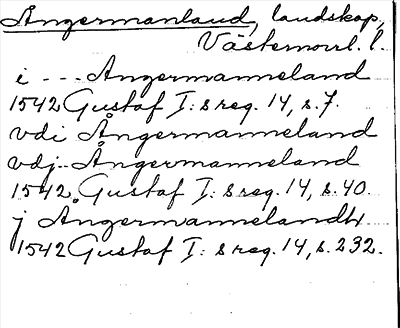 Ångermanland, landskap,
Västernorrl. l.
i --- Ångermanneland
1542 Gustaf I:s reg. 14, s. 7.
vdi Ångermanneland
vdj Ångermanneland
1542 Gustaf I:s reg. 14, s. 40.
j Ångermannelandh
1542 Gustaf I:s reg. 14, s. 232.